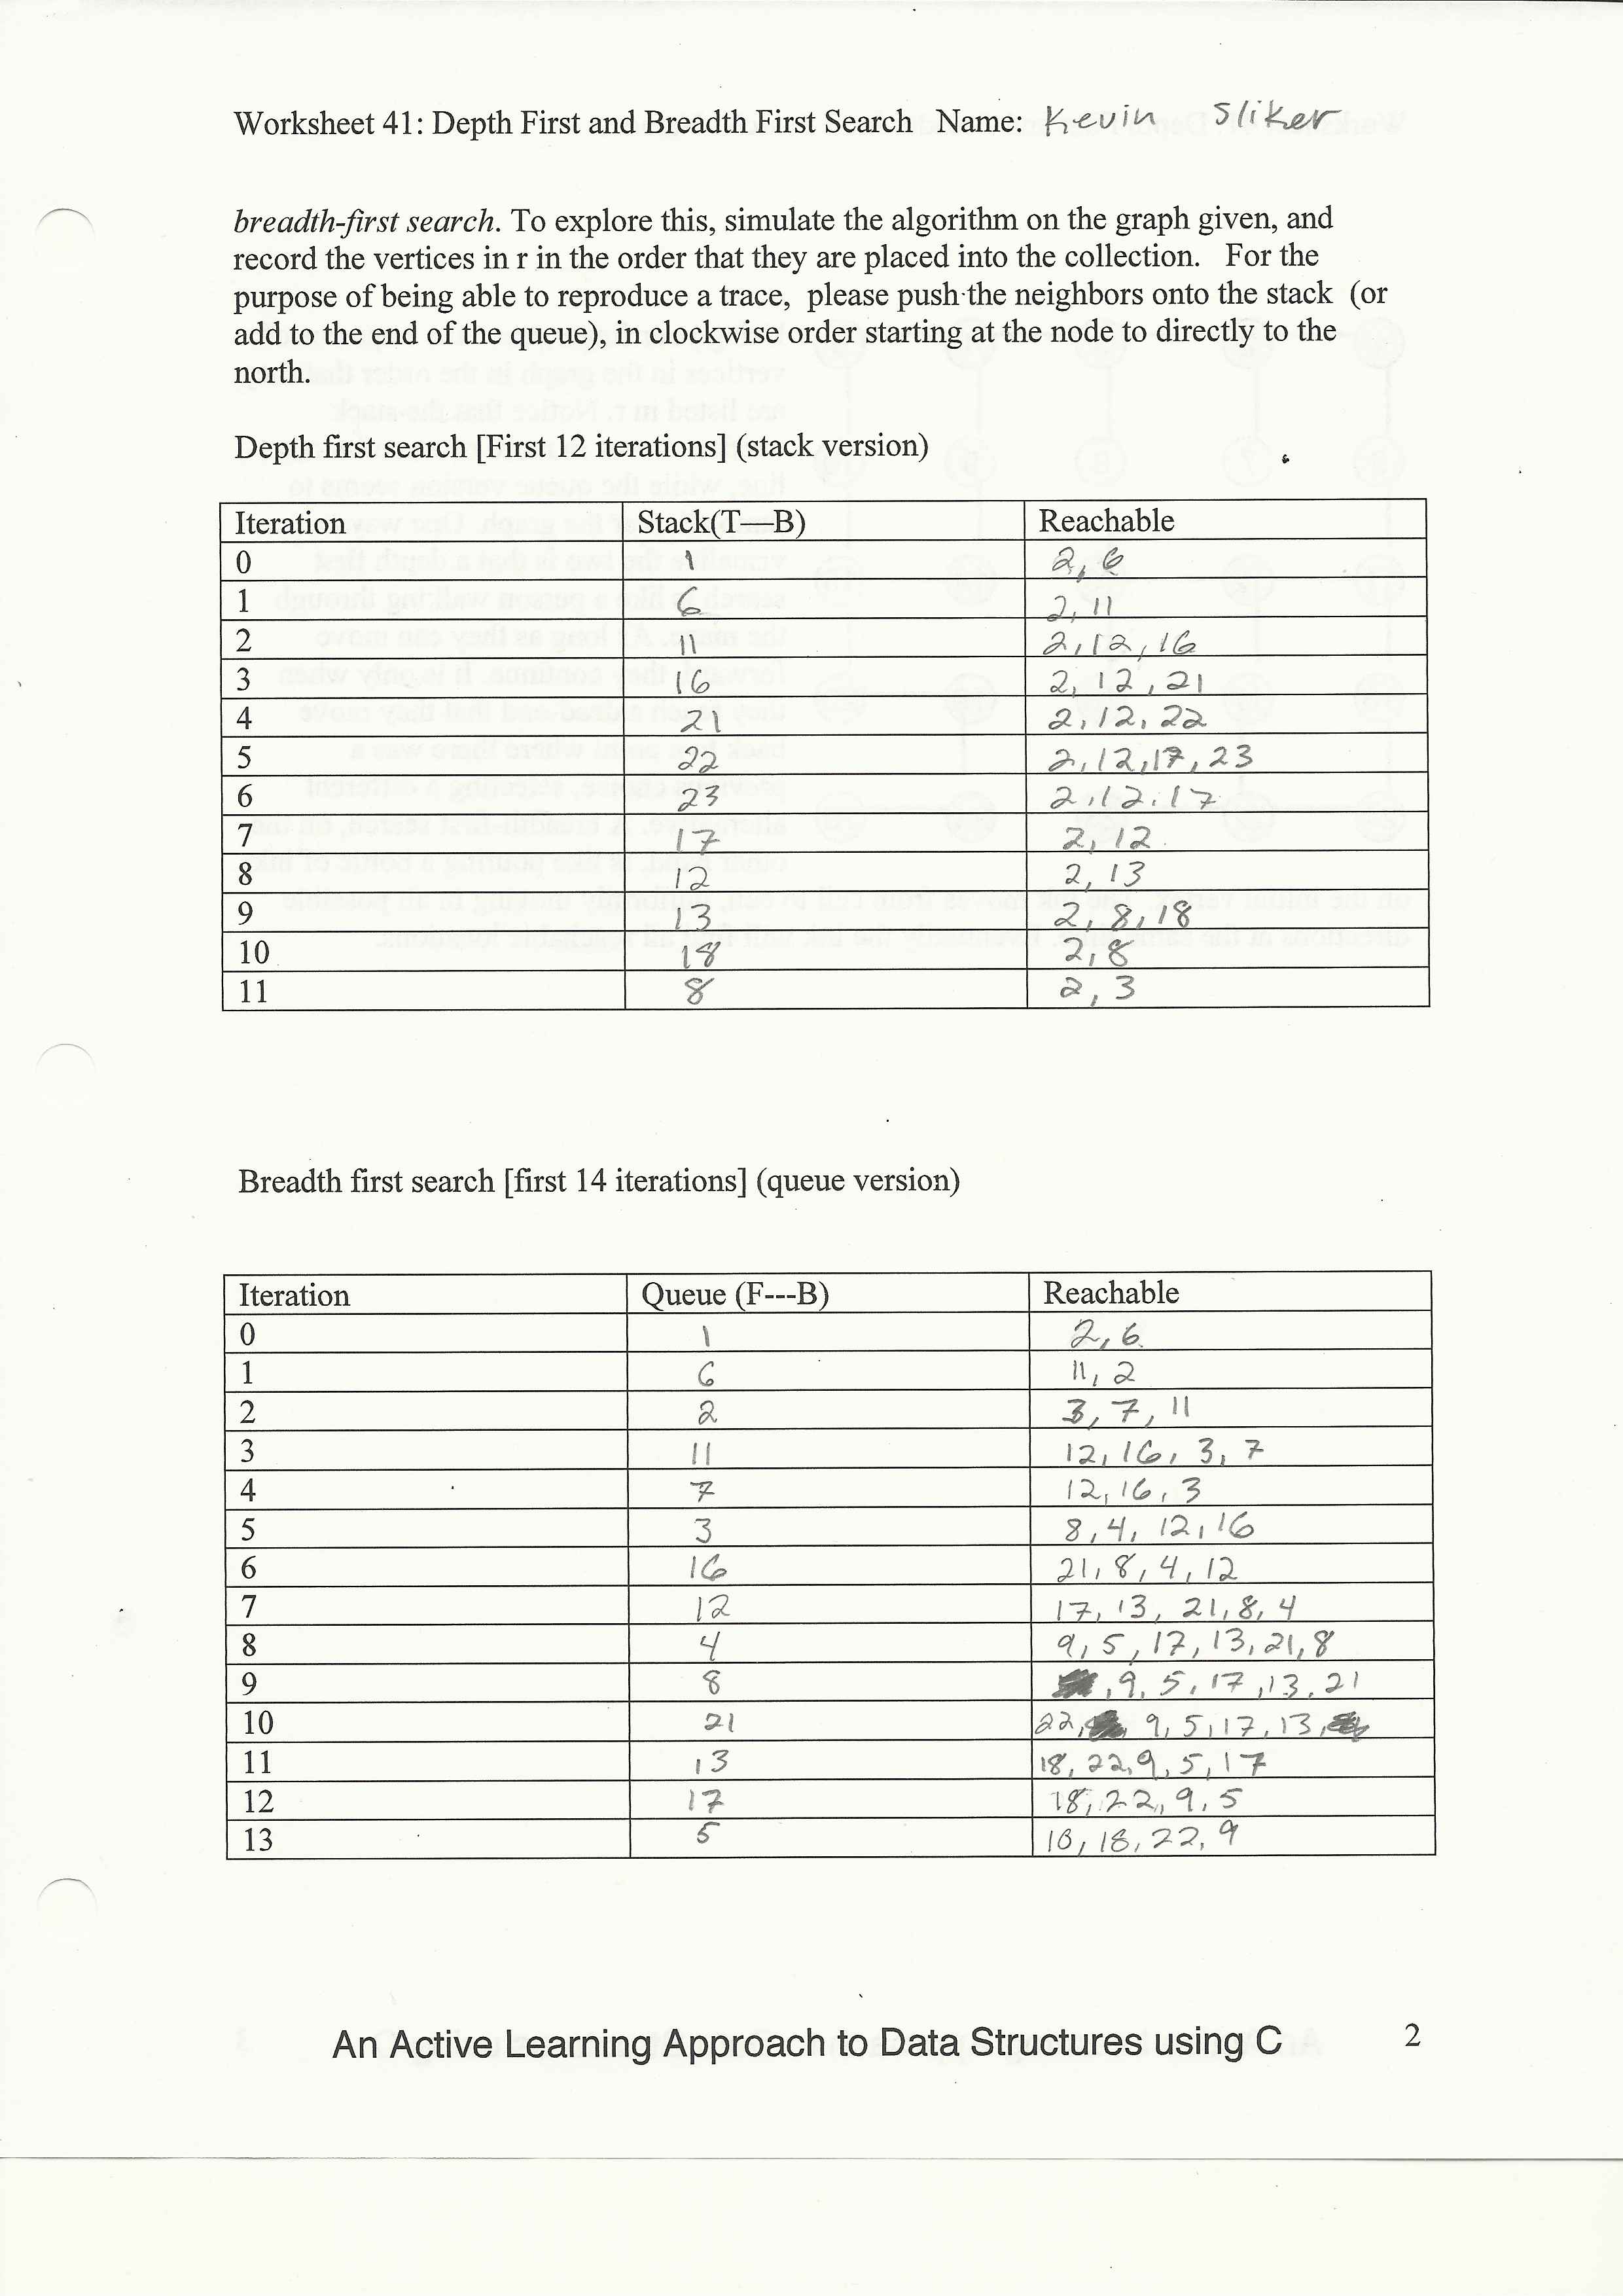 Worksheet 41: Depth First and Breadth First Search Name: Kevin Sliker
breadth-first search. To explore this, simulate the algorithm on the graph given, and
record the vertices in r in the order that they are placed into the collection. For the
purpose of being able to reproduce a trace, please push the neighbors onto the stack (or
add to the end of the queue), in clockwise order starting at the node to directly to the
north.
Depth first search [First 12 iterations] (stack version)
Iteration Stack(T—B) Reachable
0 1 2, 6
1 6 2, 11
2 11 2, 12, 16
3 16 2, 12, 21
4 21 2, 12, 22
5 22 2, 12, 17, 23
6 23 2, 12, 17
7 17 2, 12
8 12 2, 13
9 13 2, 8, 18
10 18 2, 8
11 8 2, 3
Breadth first search [first 14 iterations] (queue version)
Iteration Queue (F---B) Reachable
0 1 2, 6
1 6 11, 2
2 2 3, 7, 11
3 11 12, 16, 3, 7
4 7 12, 16, 3
5 3 8, 4, 12, 16
6 16 21, 8, 4, 12
7 12 17, 13, 21, 8, 4
8 4 9, 5, 17, 13, 21, 8
9 8 , 9, 5, 17, 13, 21
10 21 22, 9, 5, 17, 13,
11 13 18, 22, 9, 5, 17
12 17 18, 22, 9, 5
13 5 10, 18, 22, 9
An Active Learning Approach to Data Structures using C 2